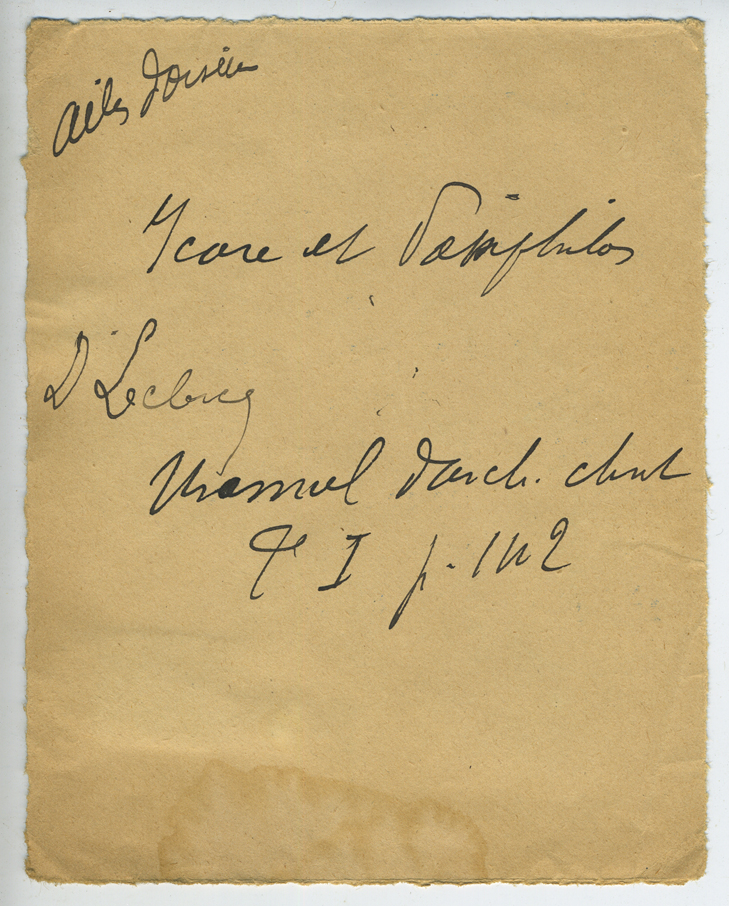 ailes d'oiseau
Icare et Pamphilos
D Leclercq
Manuel d'arch. chret
T I p. 142